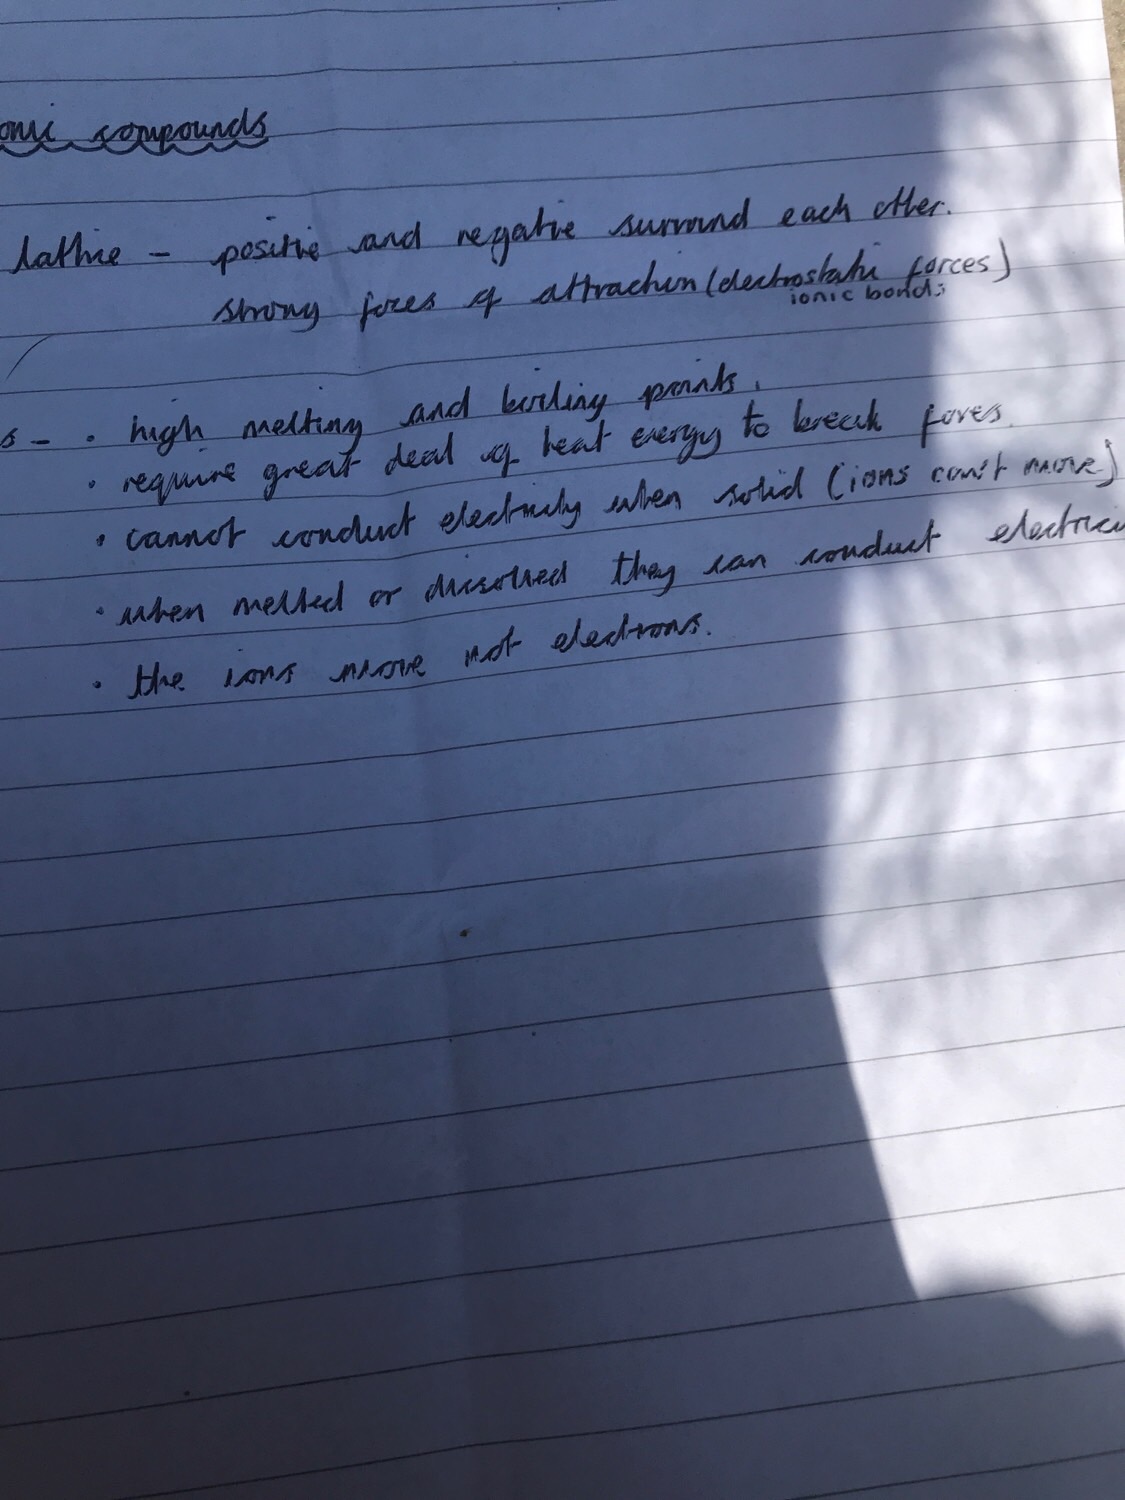 onic compounds
lattice - positive and negative surround each other.
strong forces of attraction (electrostatic forces)
ionic bonds
s - • high melting and boiling points.
• require great deal of heat energy to break forces.
• cannot conduct electricity when solid (ions can't move)
• when melted or dissolved they can conduct electrici
• the ions move not electrons.